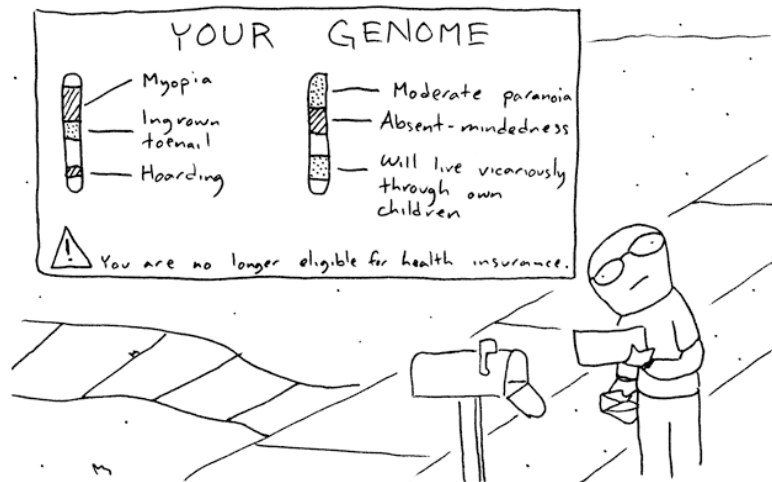 YOUR GENOME
Myopia
Ingrown
toenail
Hoarding
Moderate paranoia
Absent-mindedness
Will live vicariously
through own
children
! You are no longer eligible for health insurance.